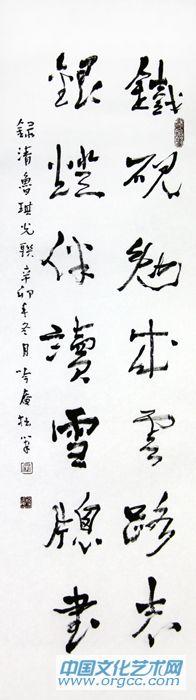 鐵硯勉成雲路志
銀燈伴讀雪牕書
録清魯琪光聯辛卯年冬月吟庵牧笙
中国文化艺术网
www.orgcc.com